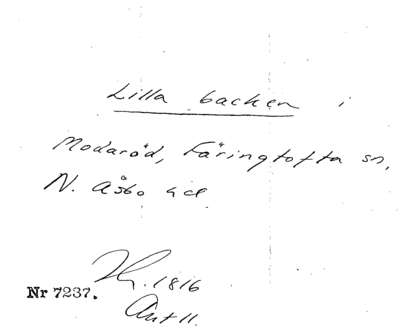 Lilla backen i
Modaröd, Färingtofta sn,
N. Åsbo hd.
1816
Nr 7237.
Ant 11.